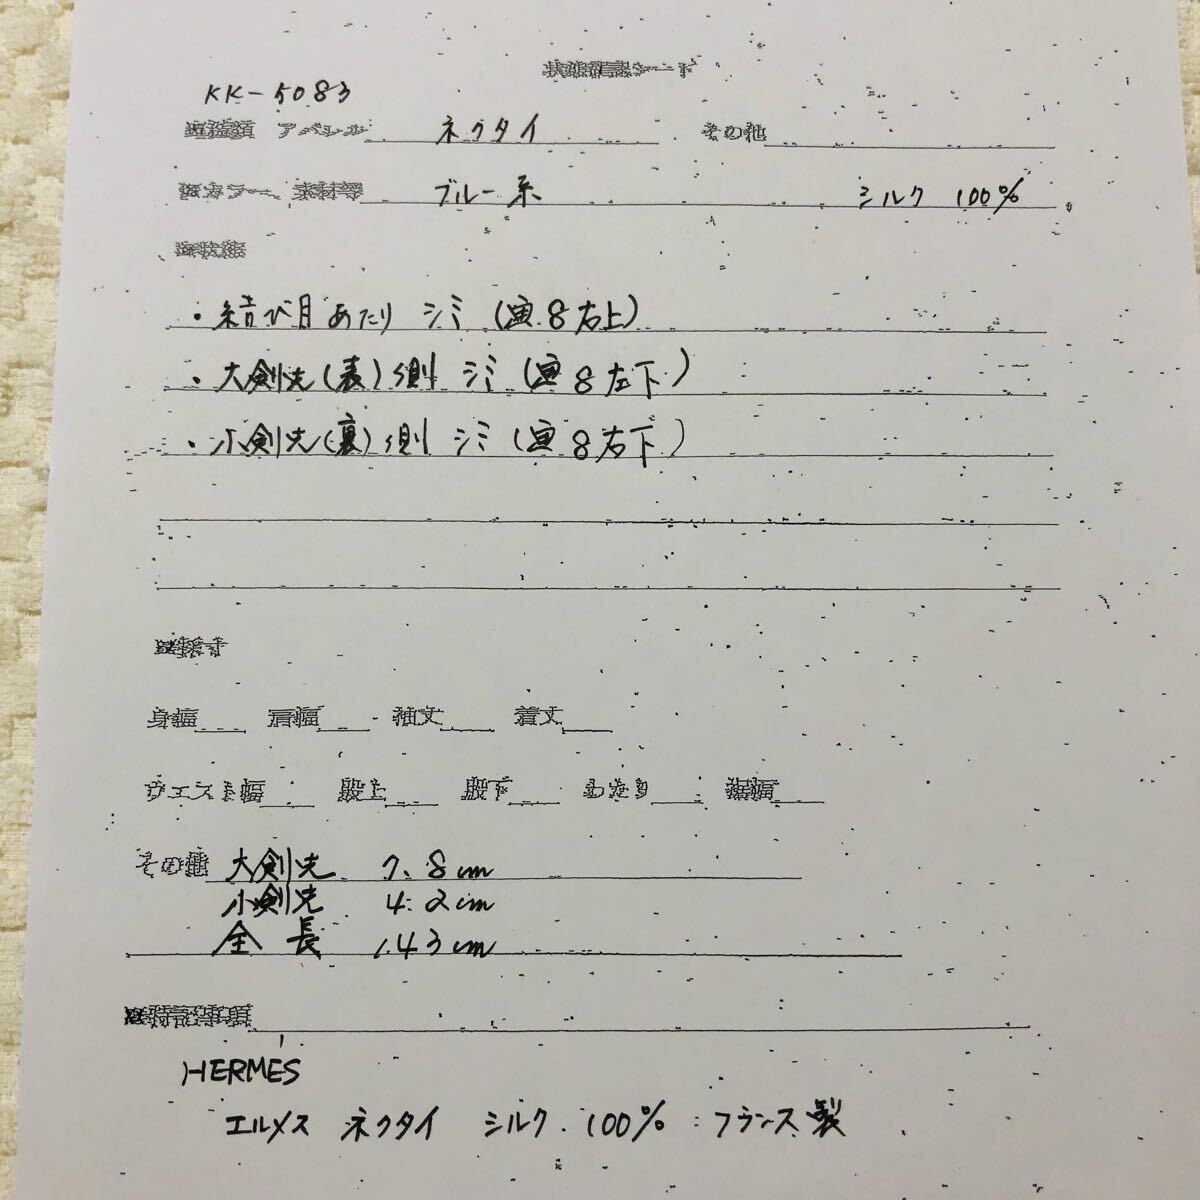 状態確認シート
KK-5083
※種類 アパレル ネクタイ その他
※カラー、素材等 ブルー系 シルク 100%
※状態
・結び目あたり シミ (画8右上)
・大剣先(表)側 シミ (画8左下)
・小剣先(裏)側 シミ (画8右下)
※採寸
身幅 肩幅 袖丈 着丈
ウエスト幅 股上 股下 わたり 裾幅
その他 大剣先 7.8cm
小剣先 4.2cm
全長 143cm
※特記事項
HERMES
エルメス ネクタイ シルク 100% フランス製